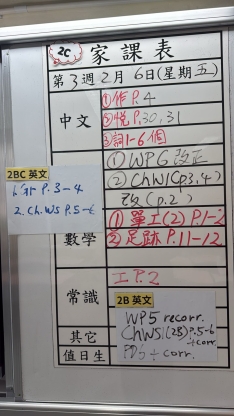 2C 家課表
第3週2月6日(星期五)
中文
①作P.4
②悅P.30,31
③詞1-6個
①WPG 改正
(2) ChW1(p3,4)
改(p.2)
2BC 英文
P.3-4
2. Ch.WS P.5-6
數學
①單工(2) P.1-2
②足跡 P.11-12
常識
工P.2
2B 英文
WP5 recorr.
ChWS1(2B)p.5-6
+corr.
+ corr.
其它
值日生